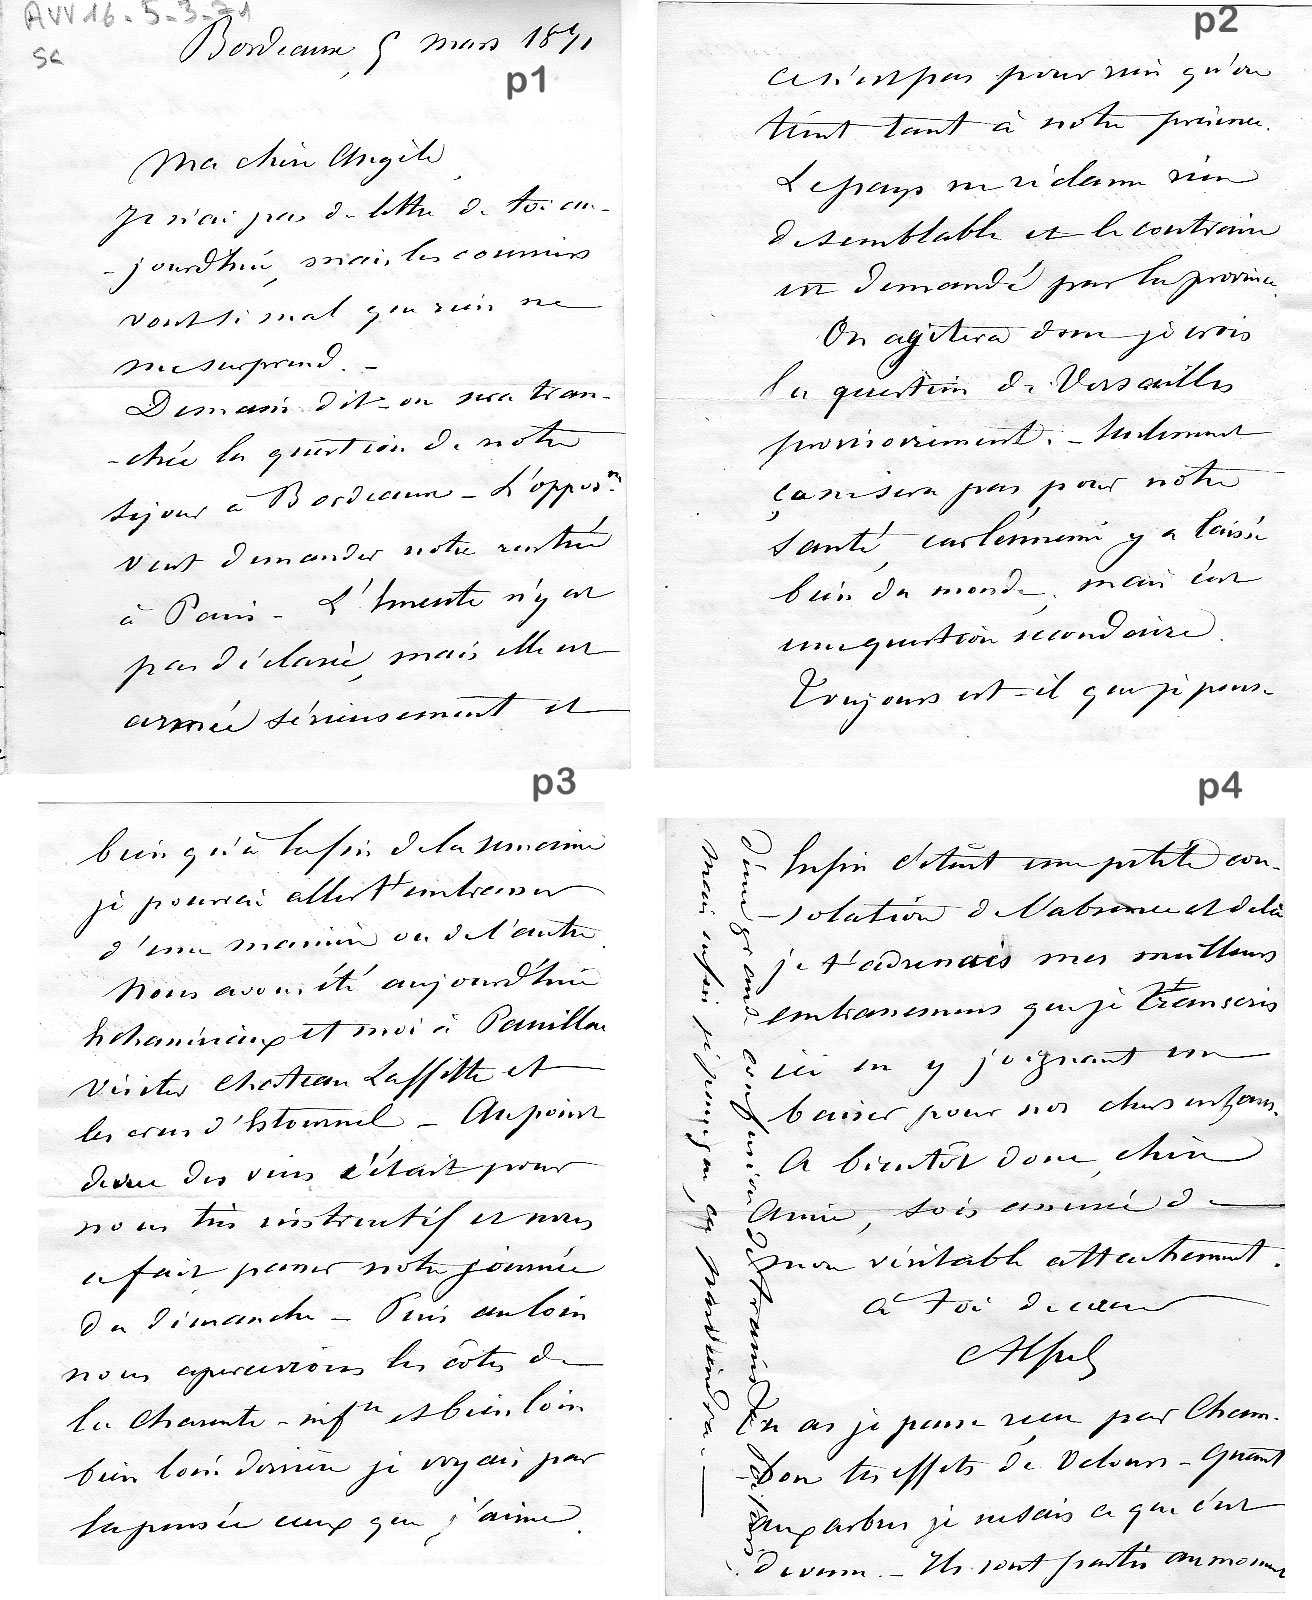 AVV 16 - 5-3-71
Sc
Bordeaux, 5 mars 1871
p1
Ma chère Angèle,
Je n'ai pas de lettre de toi au-
-jourd'hui, mais les courriers
vont si mal que rien ne
me surprend. -
Demain dit-on sera tran-
-chée la question de notre
séjour à Bordeaux - L'opposon
veut demander notre rentrée
à Paris - L'émeute n'y est
pas déclarée, mais elle est
armée sérieusement et
p2
ce n'est pas pour rien qu'on
tient tant à notre présence.
Le pays ne réclame rien
de semblable et le contraire
est demandé par la province.
On agitera donc je crois
la question de Versailles
provisoirement. - Seulement
ça ne sera pas pour notre
santé, car l'ennemi y a laissé
bien du monde, mais c'est
une question secondaire.
Toujours est-il que je pense
p3
bien qu'à la fin de la semaine
je pourrai aller t'embrasser
d'une manière ou de l'autre.
Nous avons été aujourd'hui
et moi à Pauillac
visiter Chateau Laffitte et
les crus d'Estournel - Au point
de vue des vins c'était pour
nous très instructif et nous
a fait passer notre journée
du dimanche - Puis au loin
nous apercevions les côtes de
la Charente-infre et bien loin
bien loin derrière je voyais par
la pensée ceux que j'aime.
p4
Enfin c'était une petite con-
-solation de l'absence et de là
je t'adressais mes meilleurs
embrassements que je transcris
ici en y joignant un
baiser pour nos chers enfans.
A bientôt donc, chère
Amie, sois assurée de
mon véritable attachement.
à toi de cœur
Alfred
Tu as je pense reçu par Cham-
-bon tes effets de Velours - Quant
aux arbres je ne sais ce que c'est
devenu. - Ils sont partis au moment
d'une grande confusion de trains
mais enfin je pense que ça parviendra. -